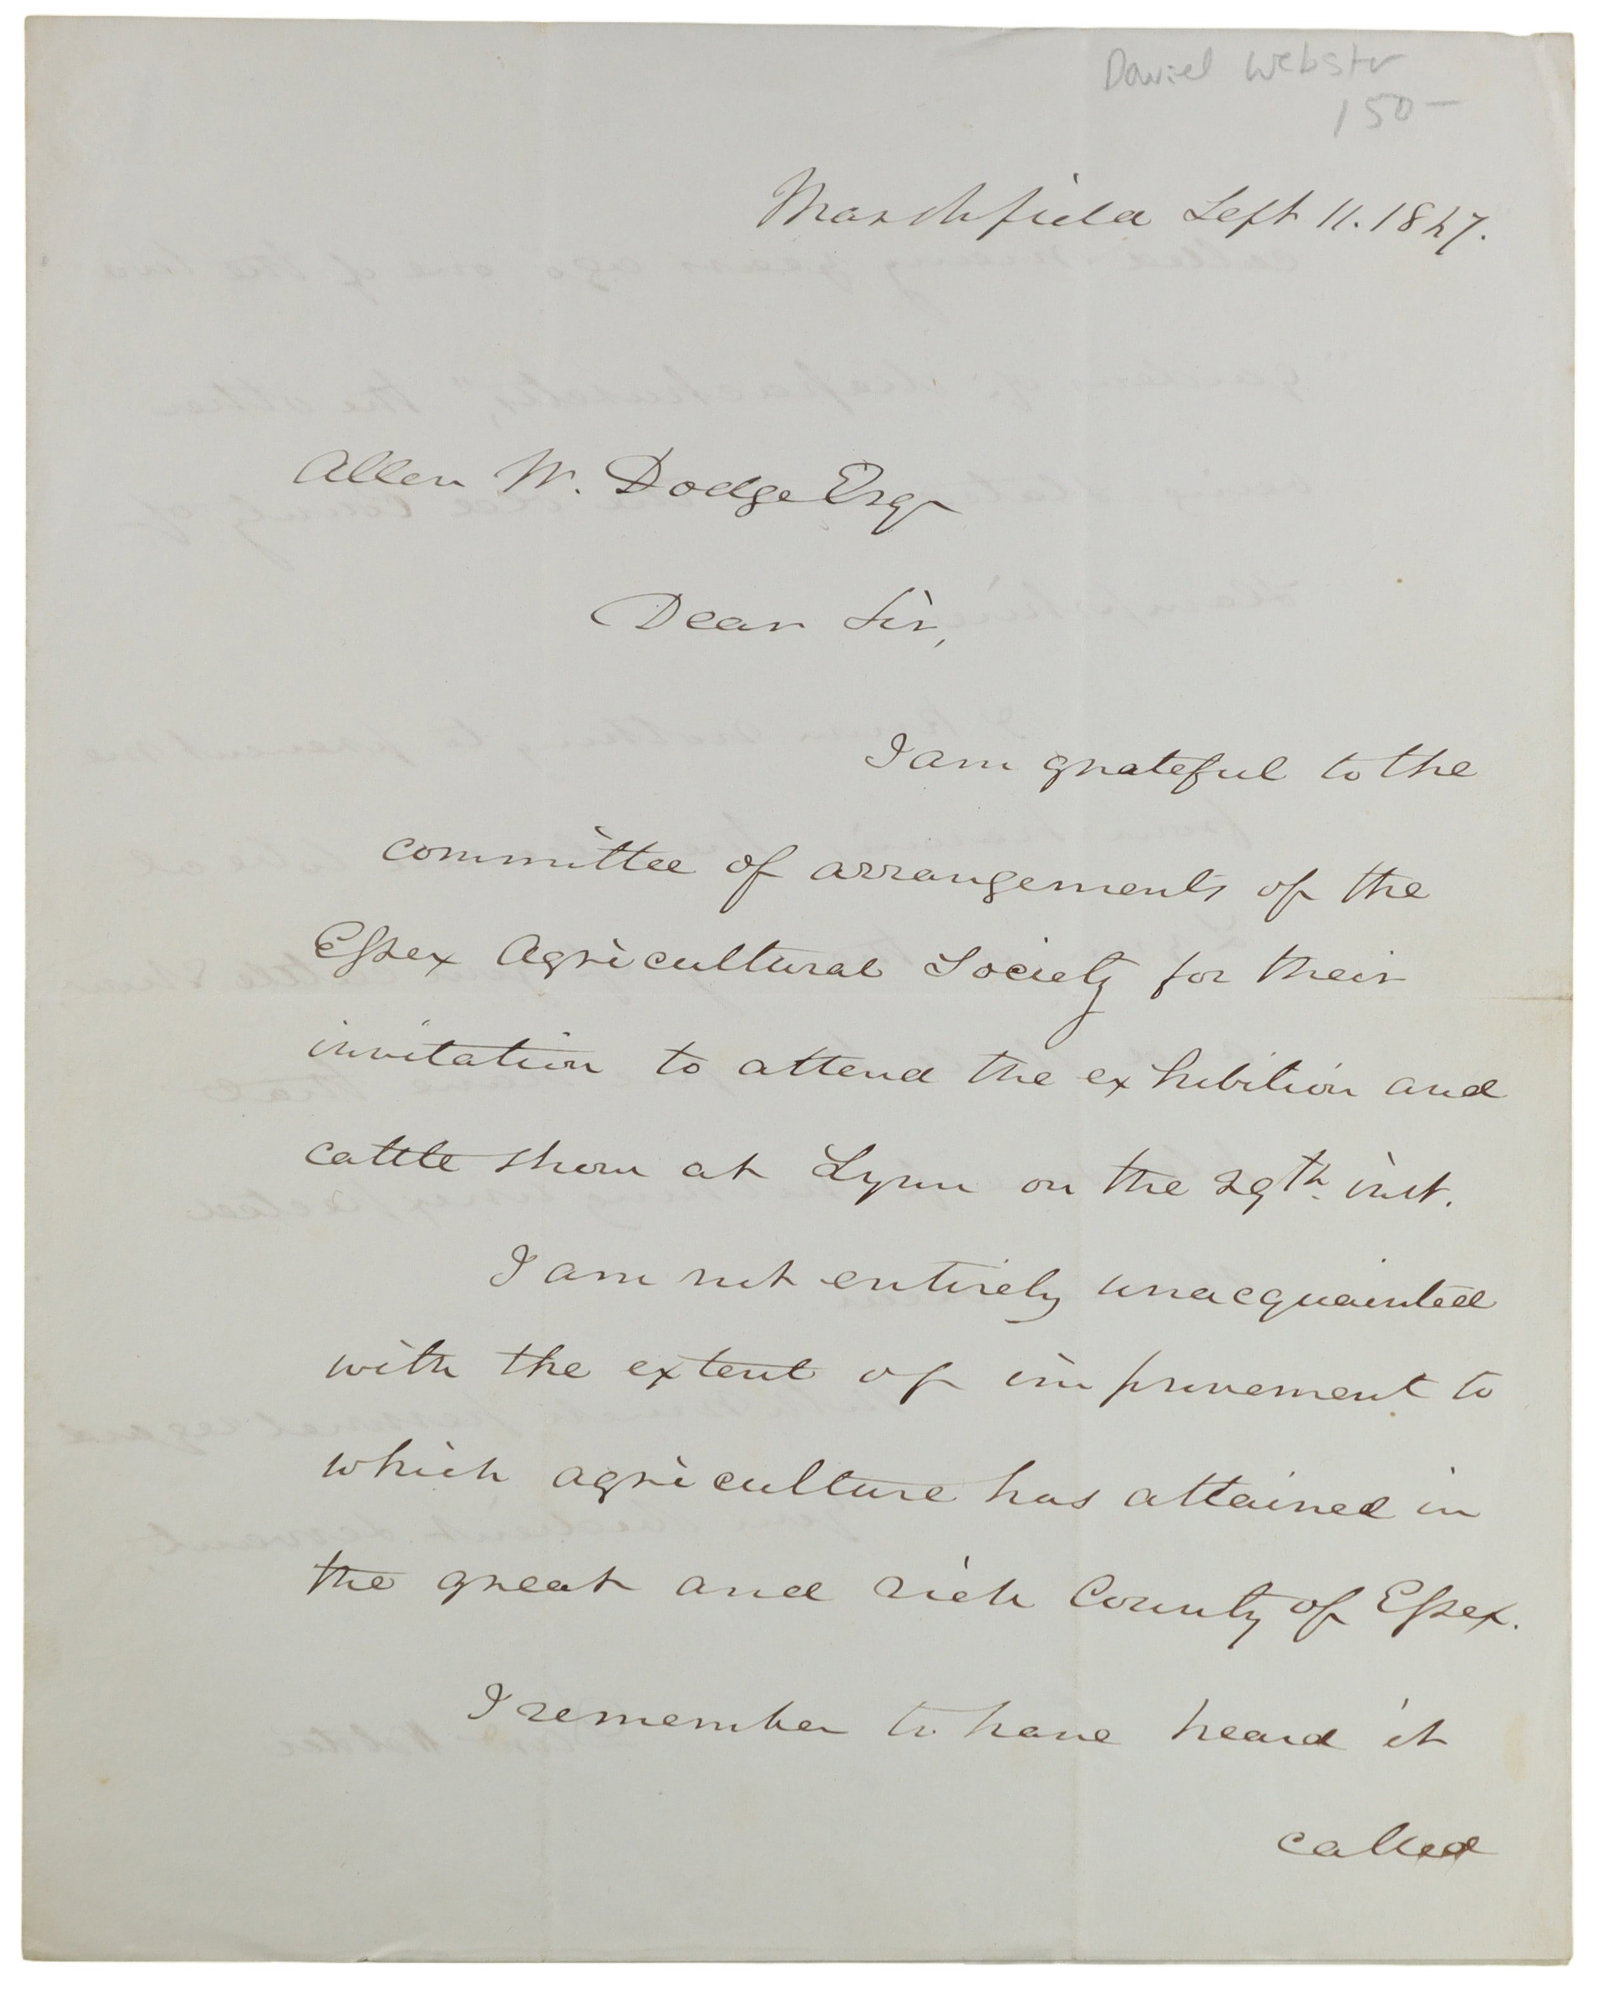 Daniel Webster
150—
Marshfield Sept 11. 1847.
Allen W. Dodge Esqr
Dear Sir,
I am grateful to the
committee of arrangements of the
Essex Agricultural Society for their
invitation to attend the exhibition and
cattle show at Lynn on the 29th inst.
I am not entirely unacquainted
with the extent of improvement to
which agriculture has attained in
the great and rich County of Essex.
I remember to have heard it
called